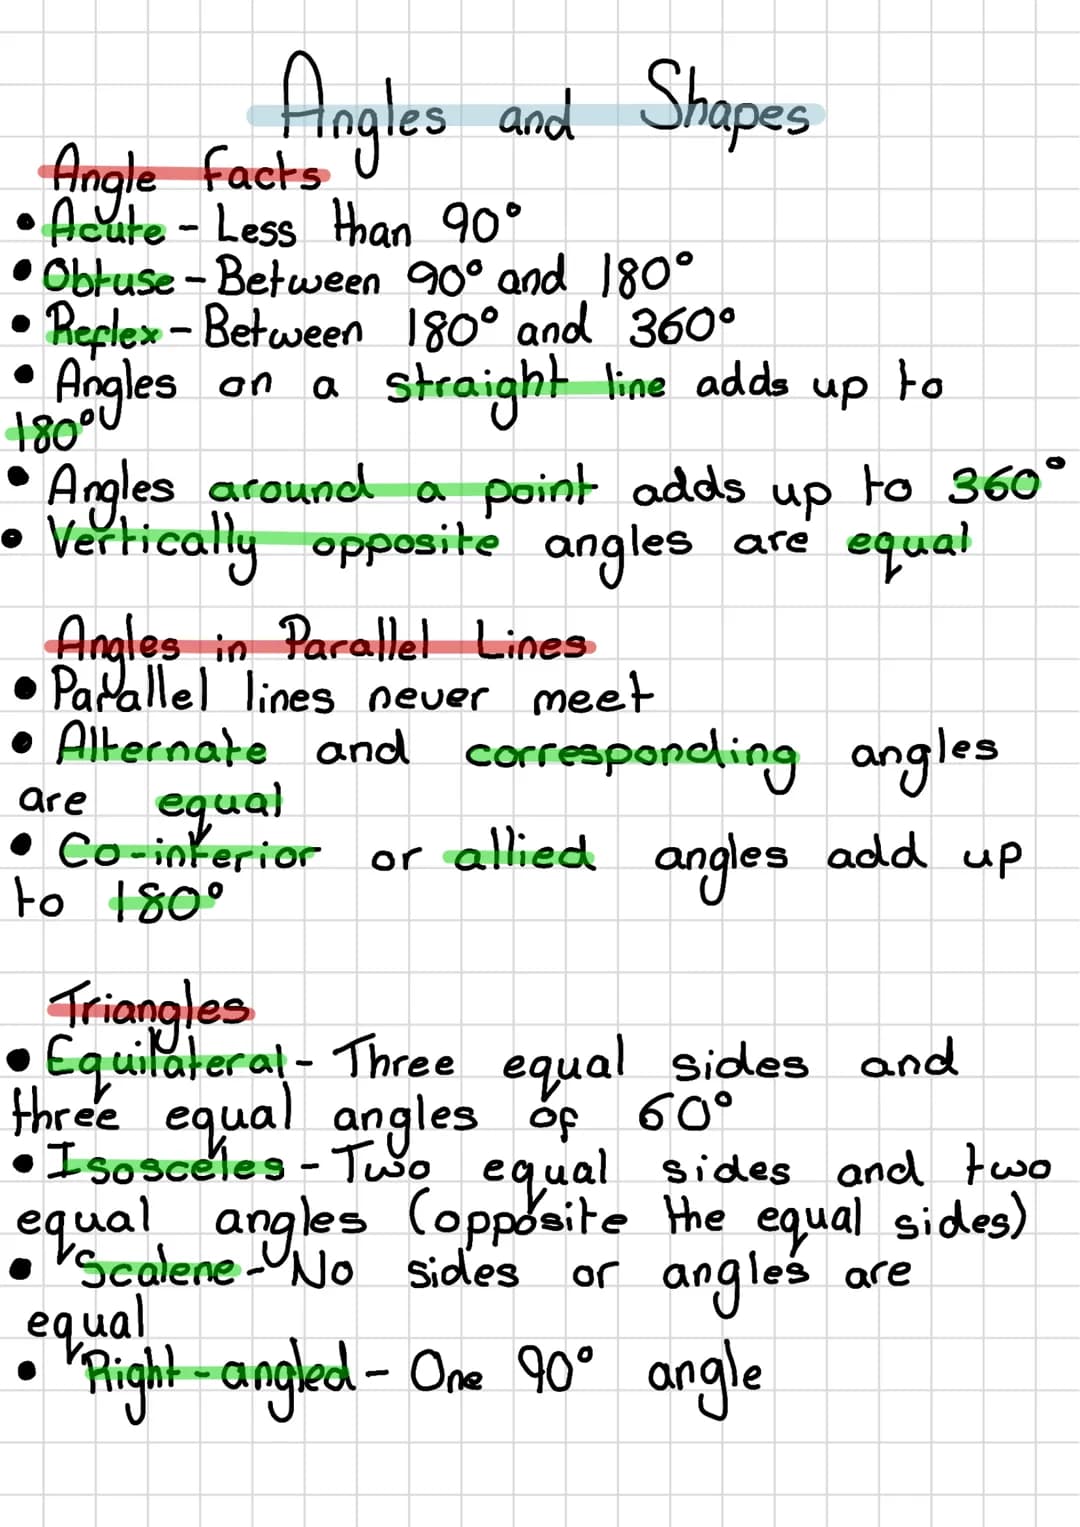 Angles and Shapes
Angle Facts
• Acute - Less than 90°
• Obtuse - Between 90° and 180°
• Reflex - Between 180° and 360°
• Angles on a straight line adds up to
180°
• Angles around a point adds up to 360°
• Vertically opposite angles are equal
Angles in Parallel Lines
• Parallel lines never meet
• Alternate and corresponding angles
are equal
• Co-interior or allied angles add up
to 180°
Triangles
• Equilateral - Three equal sides and
three equal angles of 60°
• Isosceles - Two equal sides and two
equal angles (opposite the equal sides)
• Scalene - No sides or angles are
equal
• Right-angled - One 90° angle